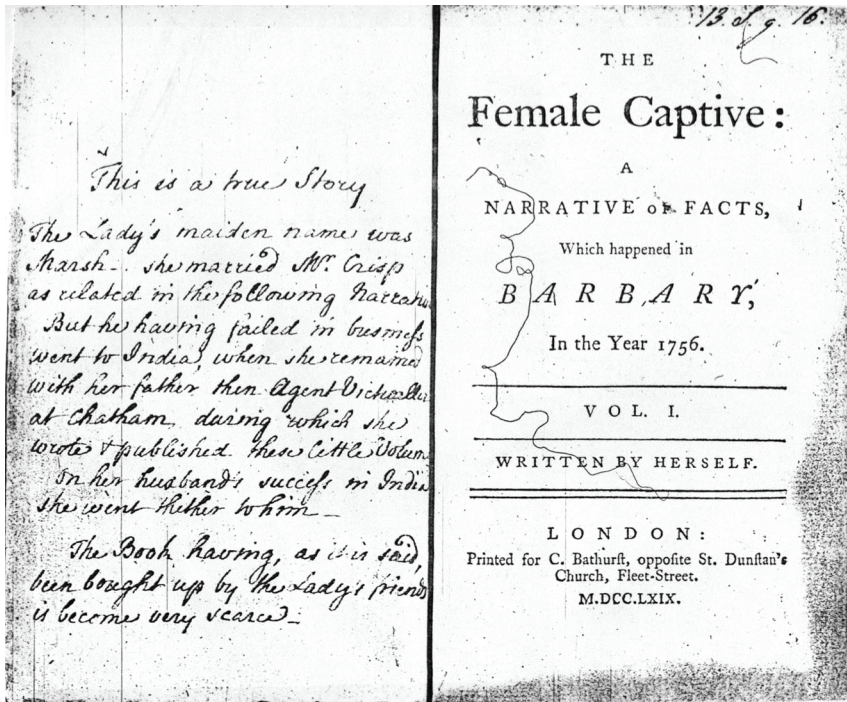 This is a true Story
The Lady's maiden name was
Marsh - she married Mr. Crisp
as related in the following Narrativ
But he having failed in busineſs
went to India, when she remained
with her father then Agent Victualler
at Chatham, during which she
wrote & published these little Volum
On her husband's succeſs in India
she went thither to him —
The Book having, as it is said,
been bought up by the Lady's friends
is become very scarce —
13. g. 16.
THE
Female Captive:
A
NARRATIVE OF FACTS,
Which happened in
BARBARY,
In the Year 1756.
VOL. I.
WRITTEN BY HERSELF.
LONDON:
Printed for C. Bathurſt, oppoſite St. Dunſtan's
Church, Fleet-Street.
M.DCC.LXIX.